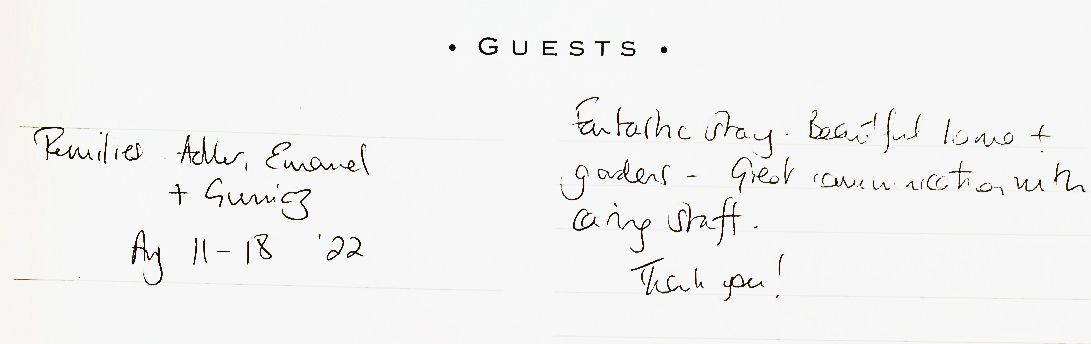 • GUESTS •
Families Adler, Emanuel
+
Aug 11-18 '22
Fantastic stay. Beautiful home +
gardens - Great communication with
caring staff.
Thank you!